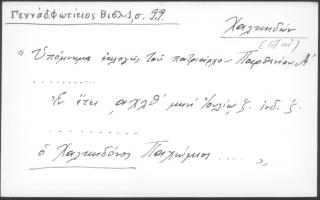 Γεννάδ. Φωτίειος Βιβλ. 1, σ. 99.
Χαλκηδών
"Ὑπόμνημα ἐκλογῆς τοῦ πατριάρχου Παρθενίου Α΄
. . . . . . . . .
Ἐν ἔτει αχλθʹ μηνὶ Ἰουλίῳ ζ. ἰνδ. ζ.
. . . . . . . . .
ὁ Χαλκηδόνος Παχώμιος ..... "